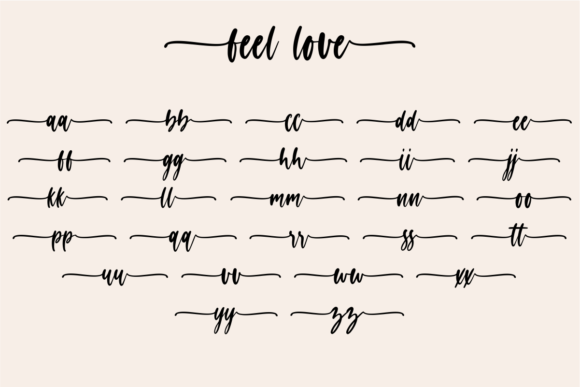 feel love
aa bb cc dd ee
ff gg hh ii jj
kk ll mm nn oo
pp qq rr ss tt
uu vv ww xx
yy zz